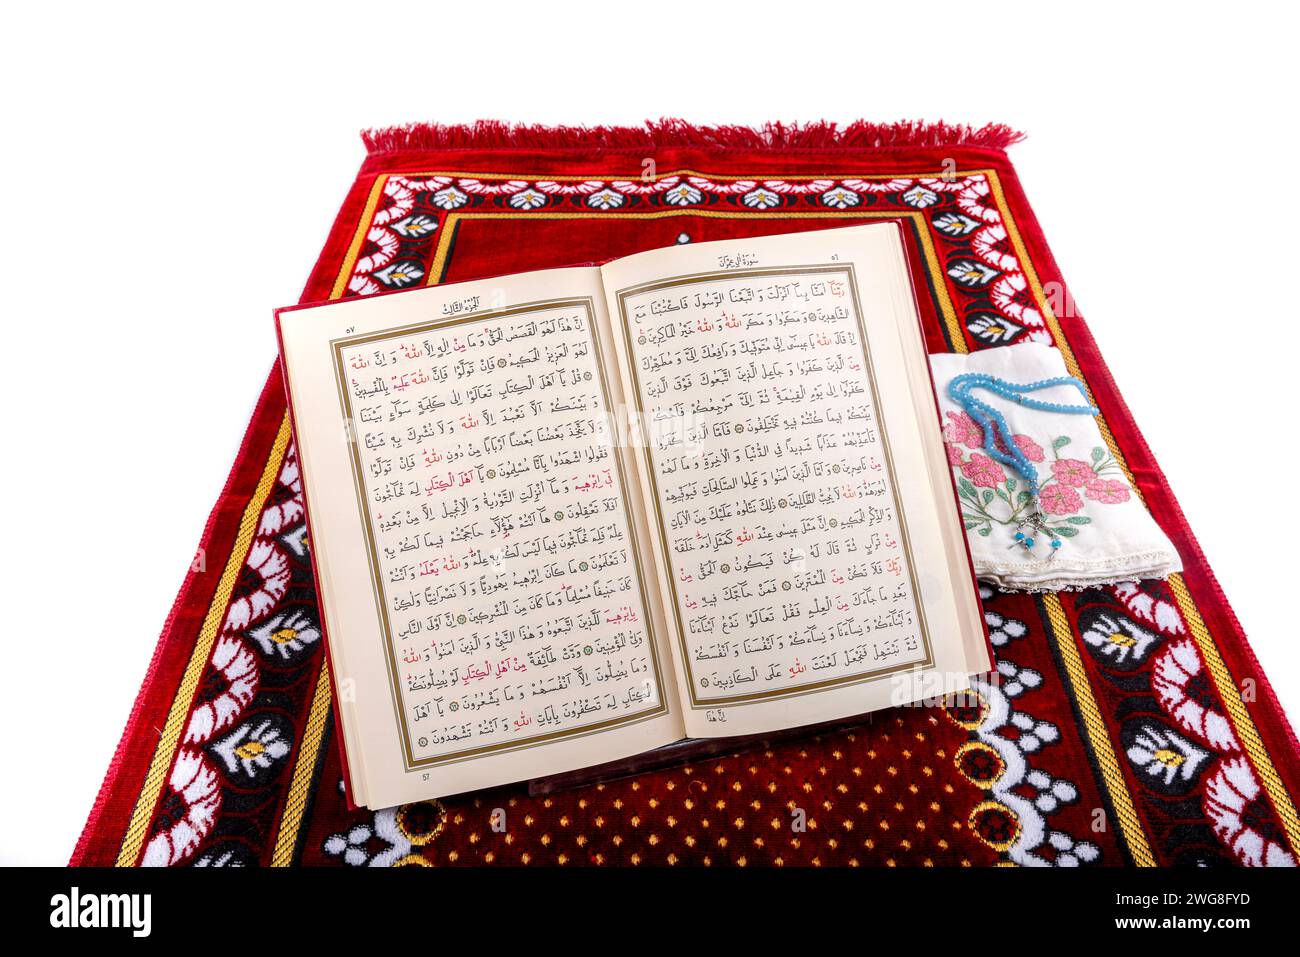 سُورَةُ اٰلِ عِمْرٰنَ ٥٦
رَبَّنَٓا اٰمَنَّا بِمَٓا اَنْزَلْتَ وَ اتَّبَعْنَا الرَّسُولَ فَاكْتُبْنَا مَعَ
الشَّاهِدٖينَ وَ مَكَرُوا وَ مَكَرَ اللّٰهُ وَ اللّٰهُ خَيْرُ الْمَاكِرٖينَ
اِذْ قَالَ اللّٰهُ يَا عٖيسٰٓى اِنّٖى مُتَوَفّٖيكَ وَ رَافِعُكَ اِلَىَّ وَ مُطَهِّرُكَ
مِنَ الَّذٖينَ كَفَرُوا وَ جَاعِلُ الَّذٖينَ اتَّبَعُوكَ فَوْقَ الَّذٖينَ
كَفَرُٓوا اِلٰى يَوْمِ الْقِيٰمَةِ ثُمَّ اِلَىَّ مَرْجِعُكُمْ فَاَحْكُمُ
بَيْنَكُمْ فٖيمَا كُنْتُمْ فٖيهِ تَخْتَلِفُونَ فَاَمَّا الَّذٖينَ كَفَرُوا
فَاُعَذِّبُهُمْ عَذَابًا شَدٖيدًا فِى الدُّنْيَا وَ الْاٰخِرَةِ وَ مَا لَهُمْ
مِنْ نَاصِرٖينَ وَ اَمَّا الَّذٖينَ اٰمَنُوا وَ عَمِلُوا الصَّالِحَاتِ فَيُوَفّٖيهِمْ
اُجُورَهُمْ وَ اللّٰهُ لَا يُحِبُّ الظَّالِمٖينَ ذٰلِكَ نَتْلُوهُ عَلَيْكَ مِنَ الْاٰيَاتِ
وَ الذِّكْرِ الْحَكٖيمِ اِنَّ مَثَلَ عٖيسٰى عِنْدَ اللّٰهِ كَمَثَلِ اٰدَمَ خَلَقَهُ
مِنْ تُرَابٍ ثُمَّ قَالَ لَهُ كُنْ فَيَكُونُ اَلْحَقُّ مِنْ
رَبِّكَ فَلَا تَكُنْ مِنَ الْمُمْتَرٖينَ فَمَنْ حَٓاجَّكَ فٖيهِ مِنْ
بَعْدِ مَا جَٓاءَكَ مِنَ الْعِلْمِ فَقُلْ تَعَالَوْا نَدْعُ اَبْنَٓاءَنَا
وَ اَبْنَٓاءَكُمْ وَ نِسَٓاءَنَا وَ نِسَٓاءَكُمْ وَ اَنْفُسَنَا وَ اَنْفُسَكُمْ
ثُمَّ نَبْتَهِلْ فَنَجْعَلْ لَعْنَتَ اللّٰهِ عَلَى الْكَاذِبٖينَ
اِنَّ هٰذَا
56
اَلْجُزْءُ الثَّالِثُ ٥٧
اِنَّ هٰذَا لَهُوَ الْقَصَصُ الْحَقُّ وَ مَا مِنْ اِلٰهٍ اِلَّا اللّٰهُ وَ اِنَّ اللّٰهَ
لَهُوَ الْعَزٖيزُ الْحَكٖيمُ فَاِنْ تَوَلَّوْا فَاِنَّ اللّٰهَ عَلٖيمٌ بِالْمُفْسِدٖينَ
قُلْ يَٓا اَهْلَ الْكِتَابِ تَعَالَوْا اِلٰى كَلِمَةٍ سَوَٓاءٍ بَيْنَنَا
وَ بَيْنَكُمْ اَلَّا نَعْبُدَ اِلَّا اللّٰهَ وَ لَا نُشْرِكَ بِهٖ شَيْئًا
وَ لَا يَتَّخِذَ بَعْضُنَا بَعْضًا اَرْبَابًا مِنْ دُونِ اللّٰهِ فَاِنْ تَوَلَّوْا
فَقُولُوا اشْهَدُوا بِاَنَّا مُسْلِمُونَ يَٓا اَهْلَ الْكِتَابِ لِمَ تُحَٓاجُّونَ
فٖٓى اِبْرٰهٖيمَ وَ مَٓا اُنْزِلَتِ التَّوْرٰيةُ وَ الْاِنْجٖيلُ اِلَّا مِنْ بَعْدِهٖ
اَفَلَا تَعْقِلُونَ هَٓا اَنْتُمْ هٰٓؤُلَٓاءِ حَاجَجْتُمْ فٖيمَا لَكُمْ بِهٖ
عِلْمٌ فَلِمَ تُحَٓاجُّونَ فٖيمَا لَيْسَ لَكُمْ بِهٖ عِلْمٌ وَ اللّٰهُ يَعْلَمُ وَ اَنْتُمْ
لَا تَعْلَمُونَ مَا كَانَ اِبْرٰهٖيمُ يَهُودِيًّا وَ لَا نَصْرَانِيًّا وَ لٰكِنْ
كَانَ حَنٖيفًا مُسْلِمًا وَ مَا كَانَ مِنَ الْمُشْرِكٖينَ اِنَّ اَوْلَى النَّاسِ
بِاِبْرٰهٖيمَ لَلَّذٖينَ اتَّبَعُوهُ وَ هٰذَا النَّبِىُّ وَ الَّذٖينَ اٰمَنُوا وَ اللّٰهُ
وَلِىُّ الْمُؤْمِنٖينَ وَدَّتْ طَٓائِفَةٌ مِنْ اَهْلِ الْكِتَابِ لَوْ يُضِلُّونَكُمْ
وَ مَا يُضِلُّونَ اِلَّٓا اَنْفُسَهُمْ وَ مَا يَشْعُرُونَ يَٓا اَهْلَ
الْكِتَابِ لِمَ تَكْفُرُونَ بِاٰيَاتِ اللّٰهِ وَ اَنْتُمْ تَشْهَدُونَ
57
alamy
Image ID: 2WG8FYD
www.alamy.com